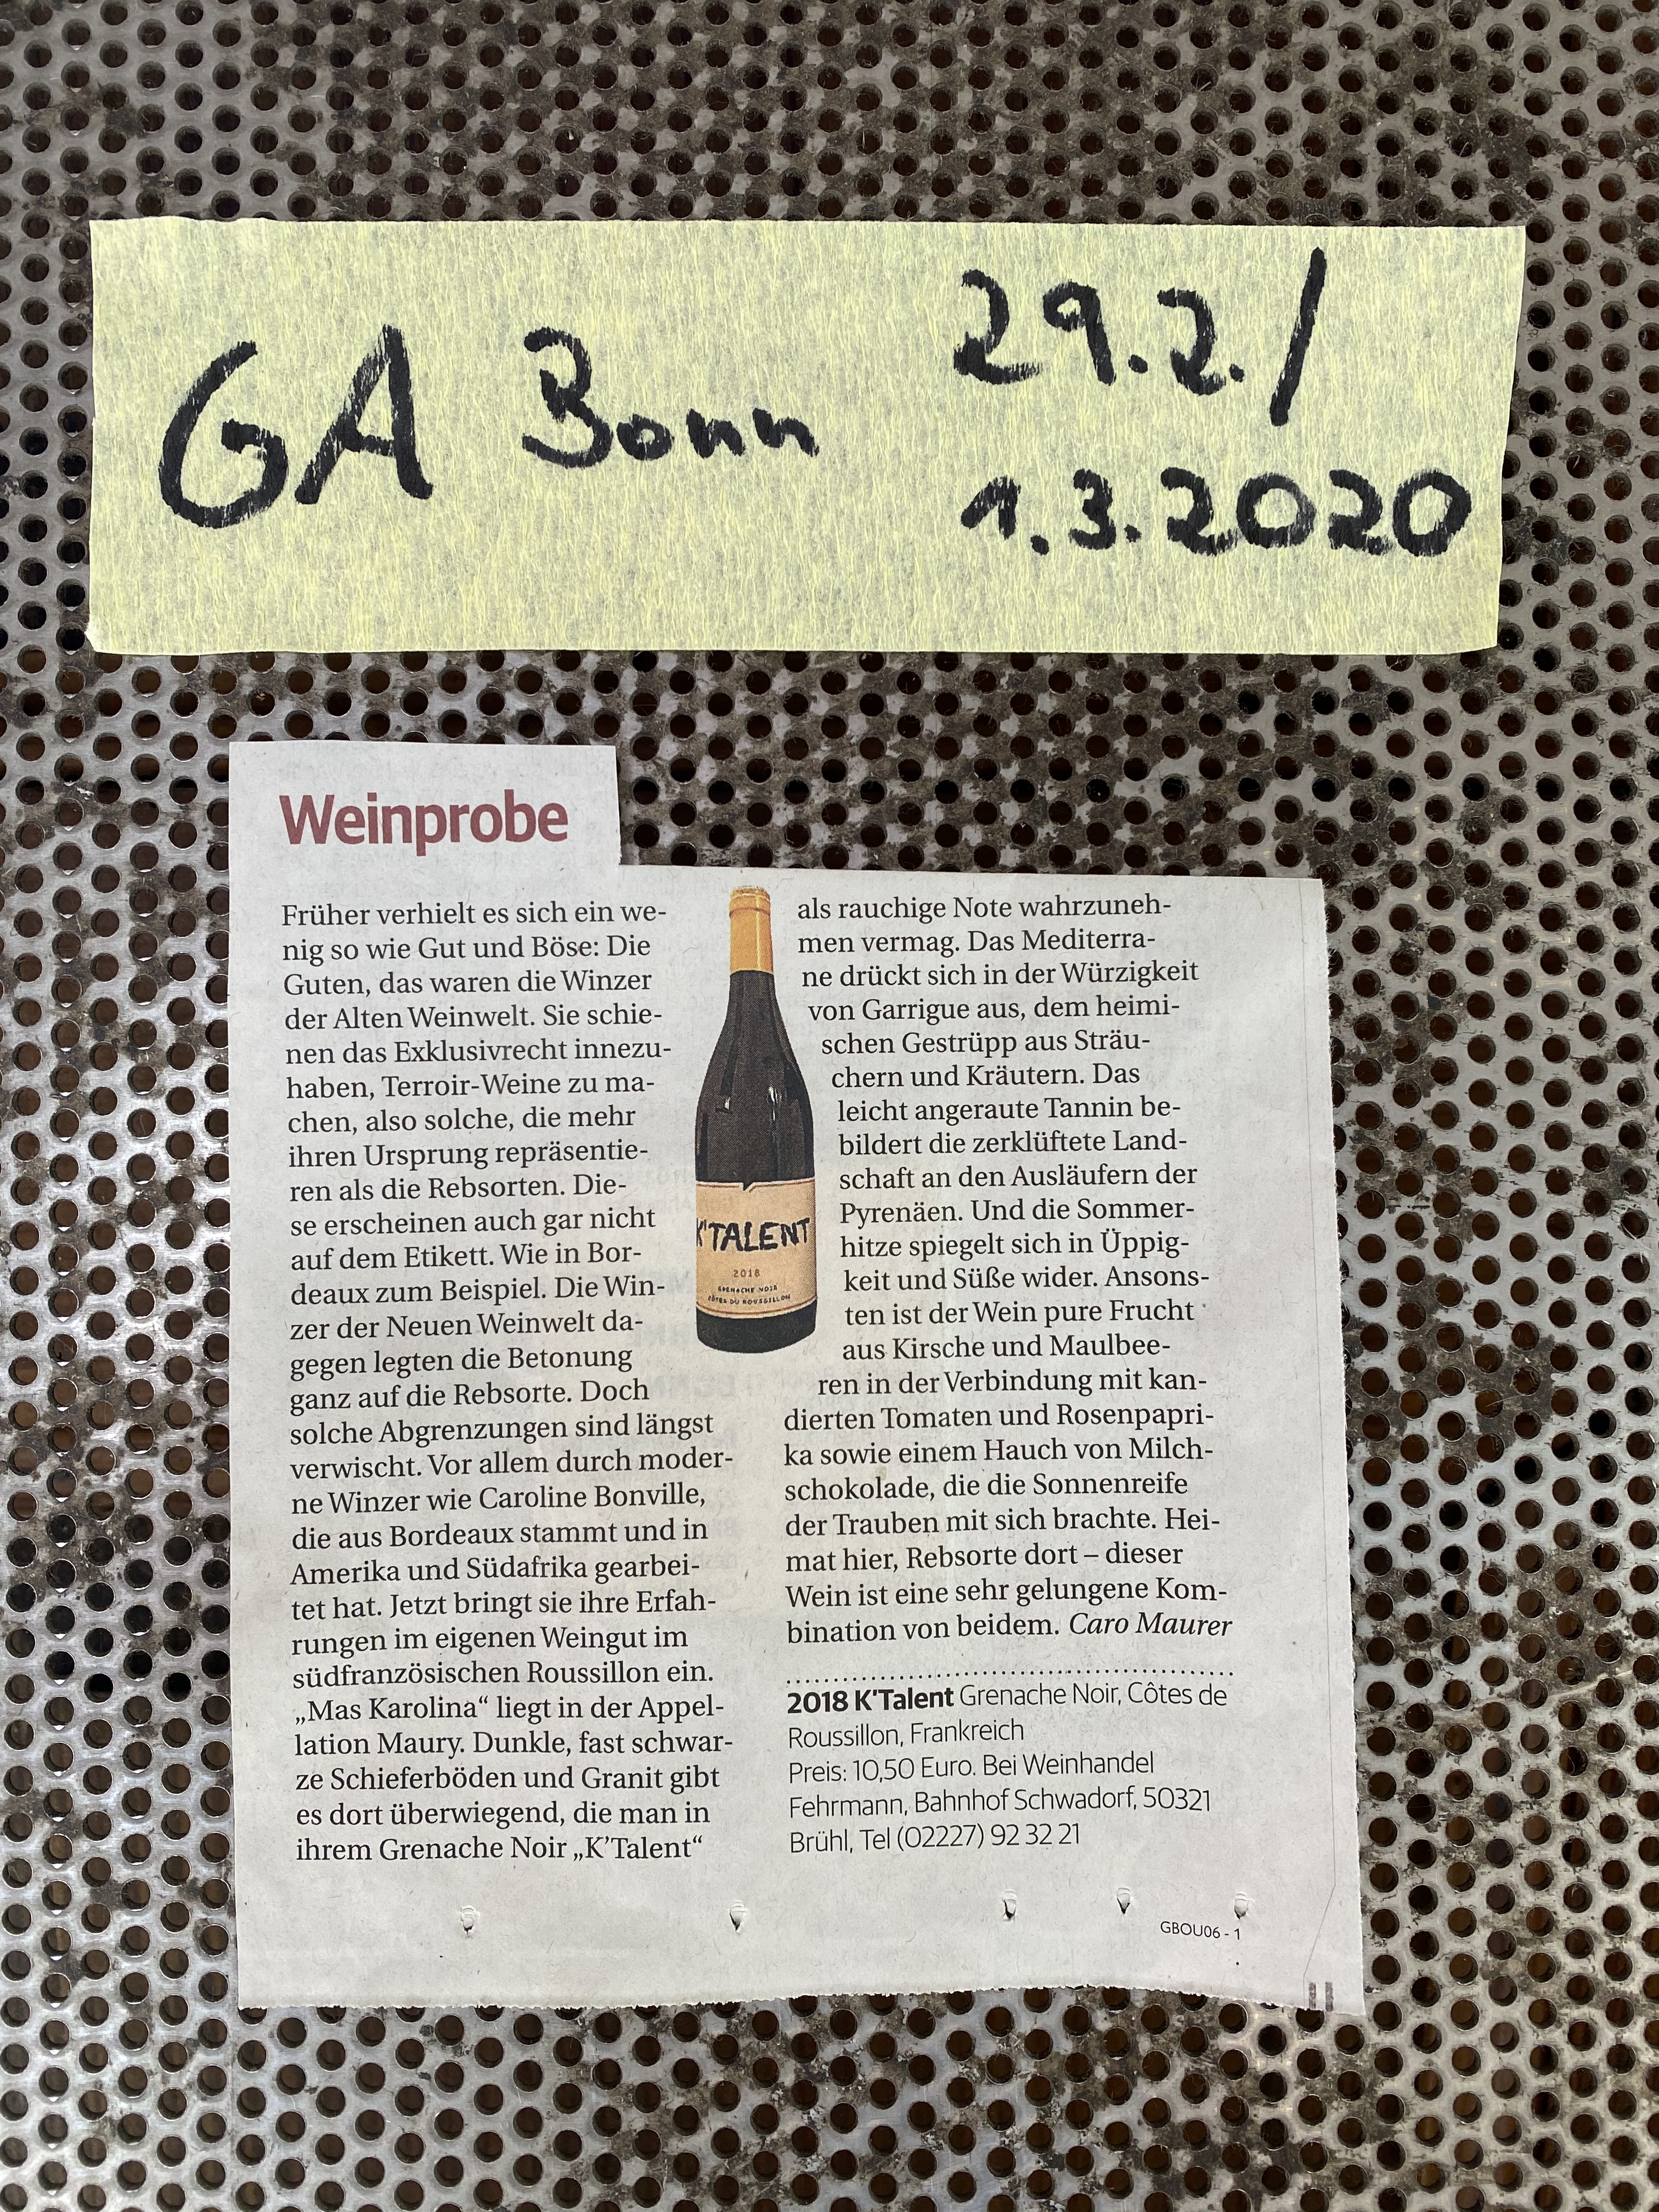 GA Bonn 29.2./
1.3.2020
Weinprobe
Früher verhielt es sich ein we-
nig so wie Gut und Böse: Die
Guten, das waren die Winzer
der Alten Weinwelt. Sie schie-
nen das Exklusivrecht innezu-
haben, Terroir-Weine zu ma-
chen, also solche, die mehr
ihren Ursprung repräsentie-
ren als die Rebsorten. Die-
se erscheinen auch gar nicht
auf dem Etikett. Wie in Bor-
deaux zum Beispiel. Die Win-
zer der Neuen Weinwelt da-
gegen legten die Betonung
ganz auf die Rebsorte. Doch
solche Abgrenzungen sind längst
verwischt. Vor allem durch moder-
ne Winzer wie Caroline Bonville,
die aus Bordeaux stammt und in
Amerika und Südafrika gearbei-
tet hat. Jetzt bringt sie ihre Erfah-
rungen im eigenen Weingut im
südfranzösischen Roussillon ein.
„Mas Karolina“ liegt in der Appel-
lation Maury. Dunkle, fast schwar-
ze Schieferböden und Granit gibt
es dort überwiegend, die man in
ihrem Grenache Noir „K’Talent“
K'TALENT
2018
GRENACHE NOIR
CÔTES DU ROUSSILLON
als rauchige Note wahrzuneh-
men vermag. Das Mediterra-
ne drückt sich in der Würzigkeit
von Garrigue aus, dem heimi-
schen Gestrüpp aus Sträu-
chern und Kräutern. Das
leicht angeraute Tannin be-
bildert die zerklüftete Land-
schaft an den Ausläufern der
Pyrenäen. Und die Sommer-
hitze spiegelt sich in Üppig-
keit und Süße wider. Ansons-
ten ist der Wein pure Frucht
aus Kirsche und Maulbee-
ren in der Verbindung mit kan-
dierten Tomaten und Rosenpapri-
ka sowie einem Hauch von Milch-
schokolade, die die Sonnenreife
der Trauben mit sich brachte. Hei-
mat hier, Rebsorte dort – dieser
Wein ist eine sehr gelungene Kom-
bination von beidem. Caro Maurer
2018 K'Talent Grenache Noir, Côtes de
Roussillon, Frankreich
Preis: 10,50 Euro. Bei Weinhandel
Fehrmann, Bahnhof Schwadorf, 50321
Brühl, Tel (02227) 92 32 21
GBOU06 - 1